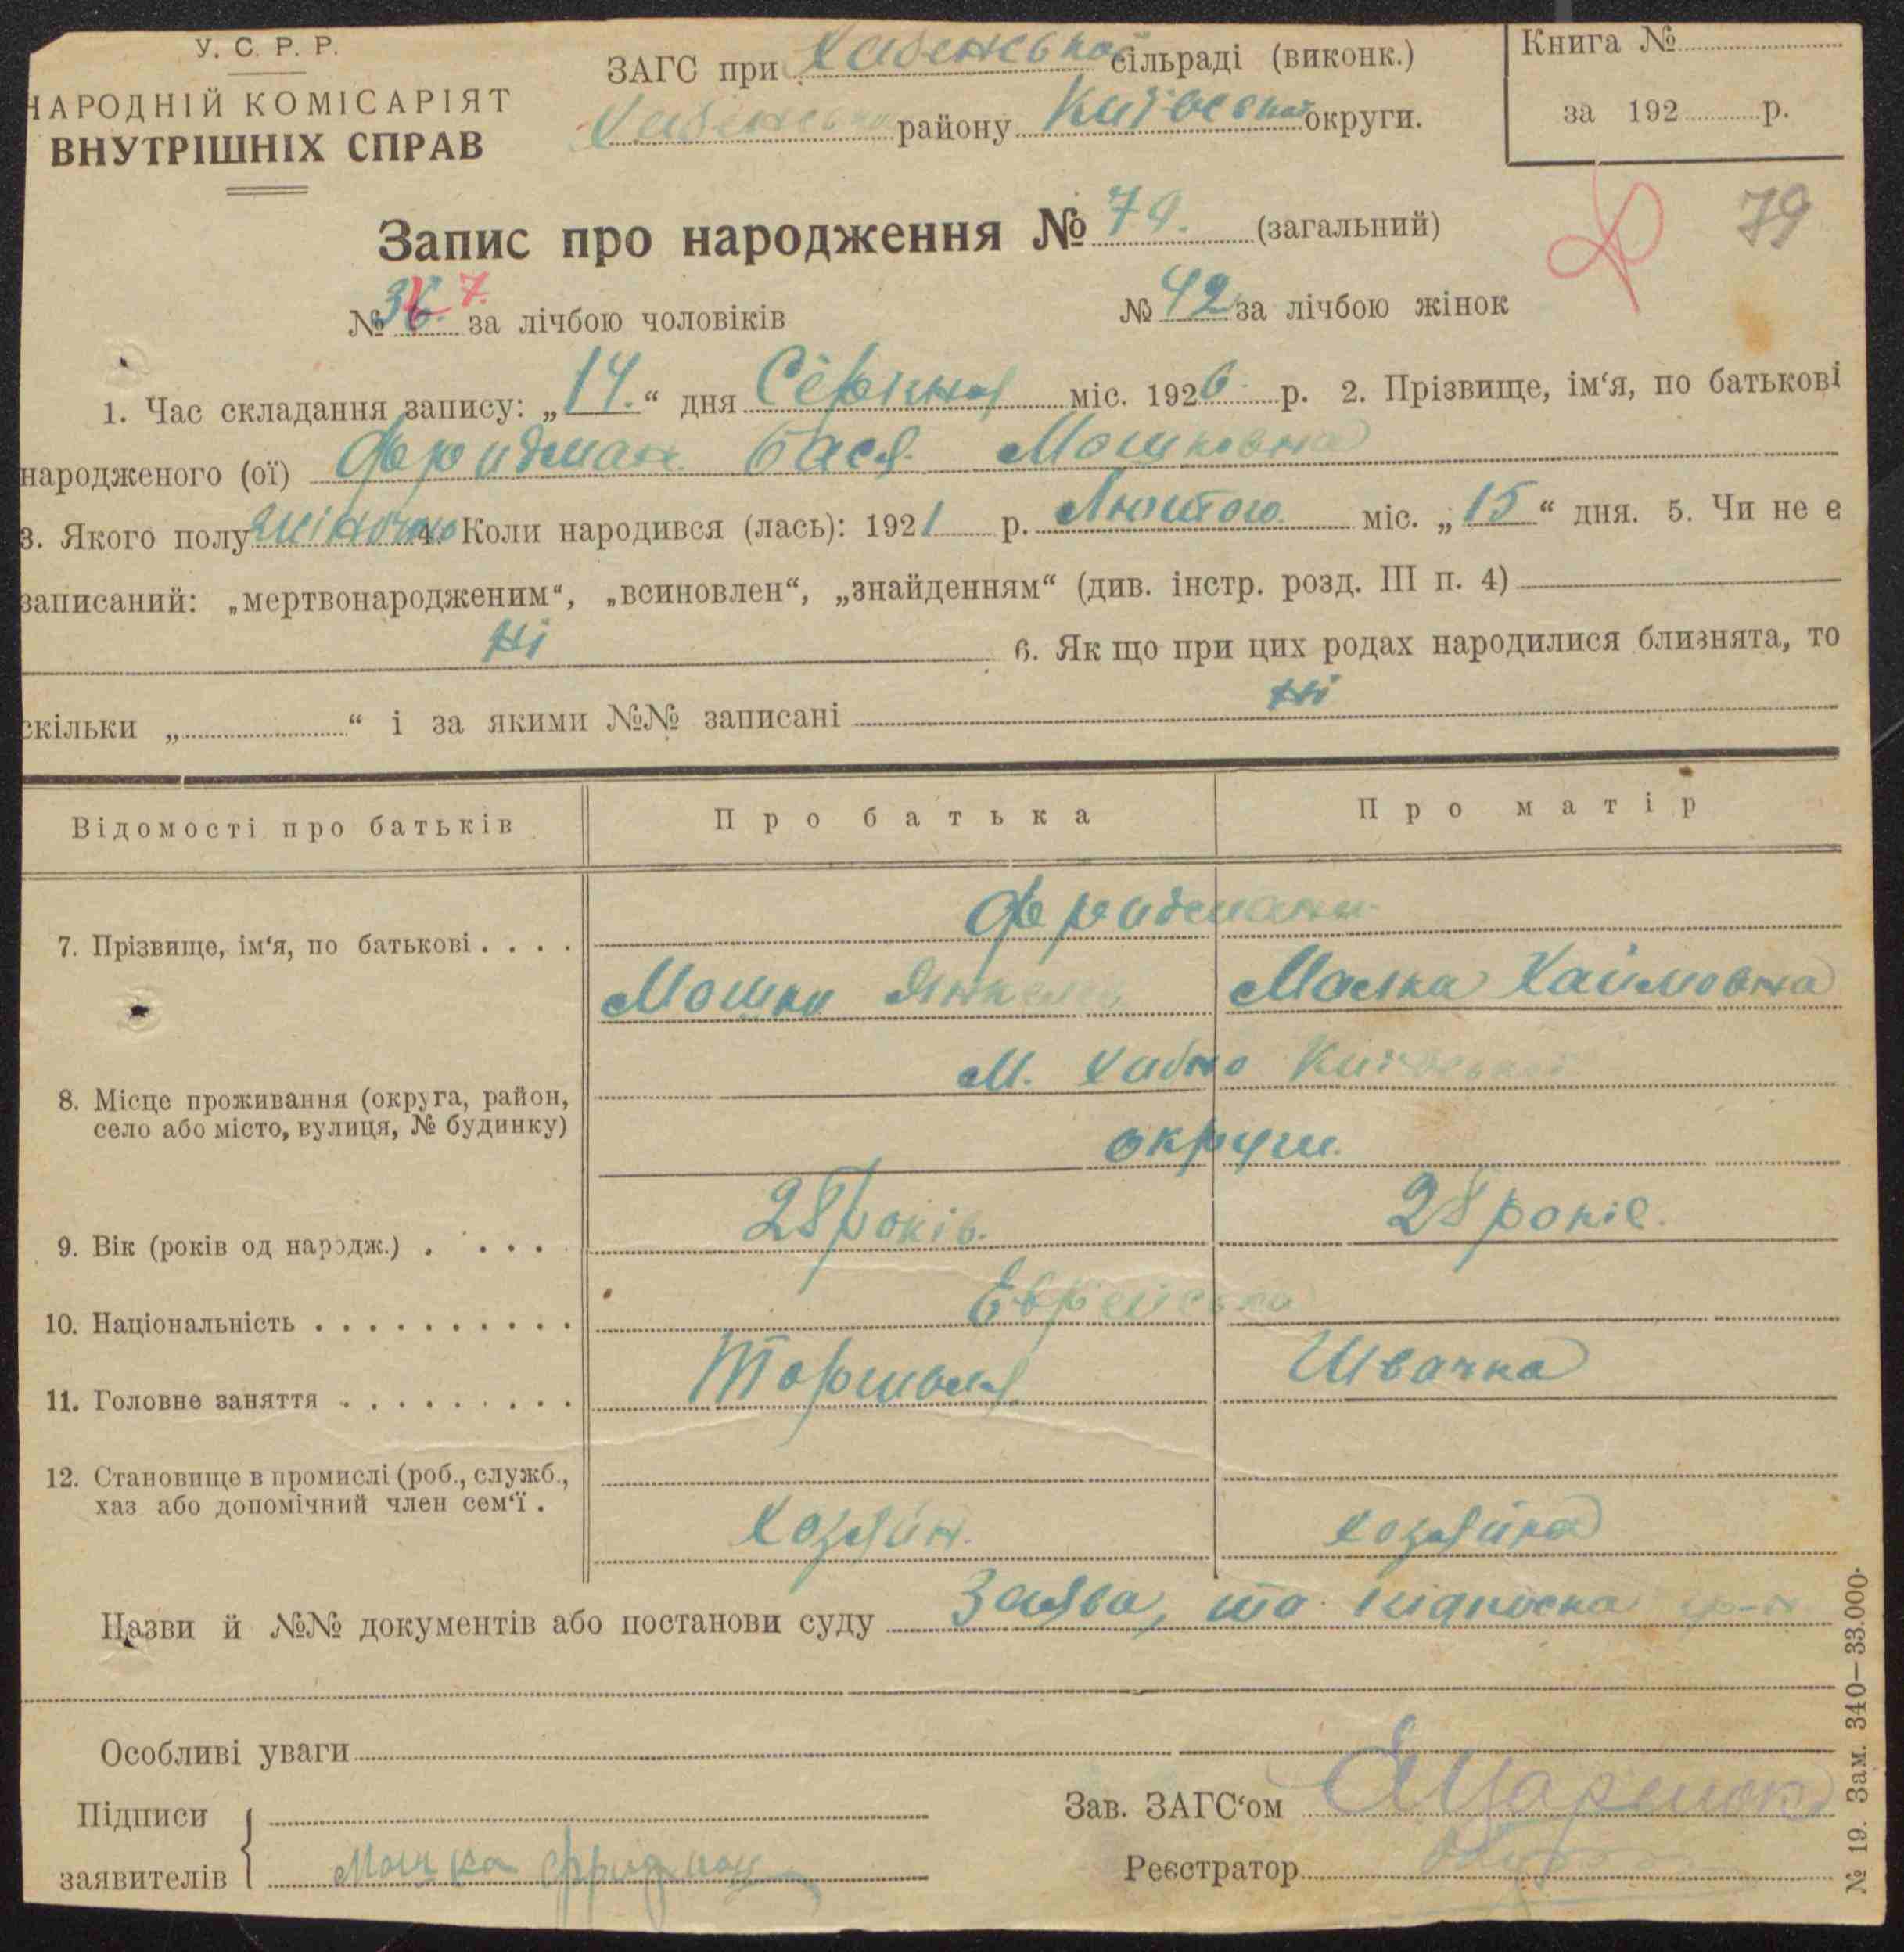 У. С. Р. Р.
НАРОДНІЙ КОМІСАРІЯТ
ВНУТРІШНІХ СПРАВ
ЗАГС при Хабенської сільраді (виконк.)
Хабенсько району Київської округи.
Книга №
за 192 р.
Запис про народження № 79. (загальний)
79
№ 36. 7. за лічбою чоловіків № 42 за лічбою жінок
1. Час складання запису: „14.“ дня Серпня міс. 1926 р. 2. Прізвище, ім‘я, по батькові
народженого (ої) Фридман Бася Мошковна
3. Якого полу жіночо 4. Коли народився (лась): 1921 р. Лютого міс. „15“ дня. 5. Чи не є
записаний: „мертвонародженим“, „всиновлен“, „знайденням“ (див. інстр. розд. III п. 4)
Ні
6. Як що при цих родах народилися близнята, то
скільки „ “ і за якими №№ записані Ні
Відомості про батьків Про батька Про матір
Фридмани
7. Прізвище, ім‘я, по батькові . . . .
Мошко Янкелев Малка Хаймовна
м. Хабно Київської
8. Місце проживання (округа, район,
село або місто, вулиця, № будинку)
округи.
9. Вік (років од народж.) . . . . 28 років. 28 років.
10. Національність . . . . . . . . . . Еврейська
11. Головне заняття . . . . . . . . . Торговля Швачка
12. Становище в промислі (роб., служб.,
хаз або допомічний член сем‘ї .
хозяїн. хозяйка
Назви й №№ документів або постанови суду Заява, та підписка гр-н
Особливі уваги
Підписи
заявителів Мошка Фридман
Зав. ЗАГС‘ом
Реєстратор
№ 19. Зам. 340—33.000.